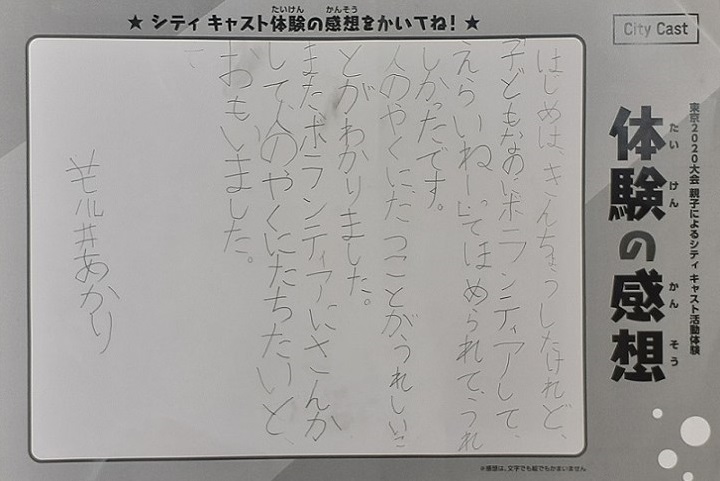 ★ シティ キャスト体験の感想をかいてね！ ★
たいけん かんそう
City Cast
東京2020大会 親子によるシティ キャスト活動体験
体験の感想
たい けん かん そう
はじめは、きんちょうしたけれど、
「子どもなのにボランティアして、
えらいねー」ってほめられて、うれ
しかったです。
人のやくにたつことがうれしいこ
とがわかりました。
またボランティアにさんか
して、人のやくにたちたいと、
おもいました。
荒井あかり
※感想は、文字でも絵でもかまいません